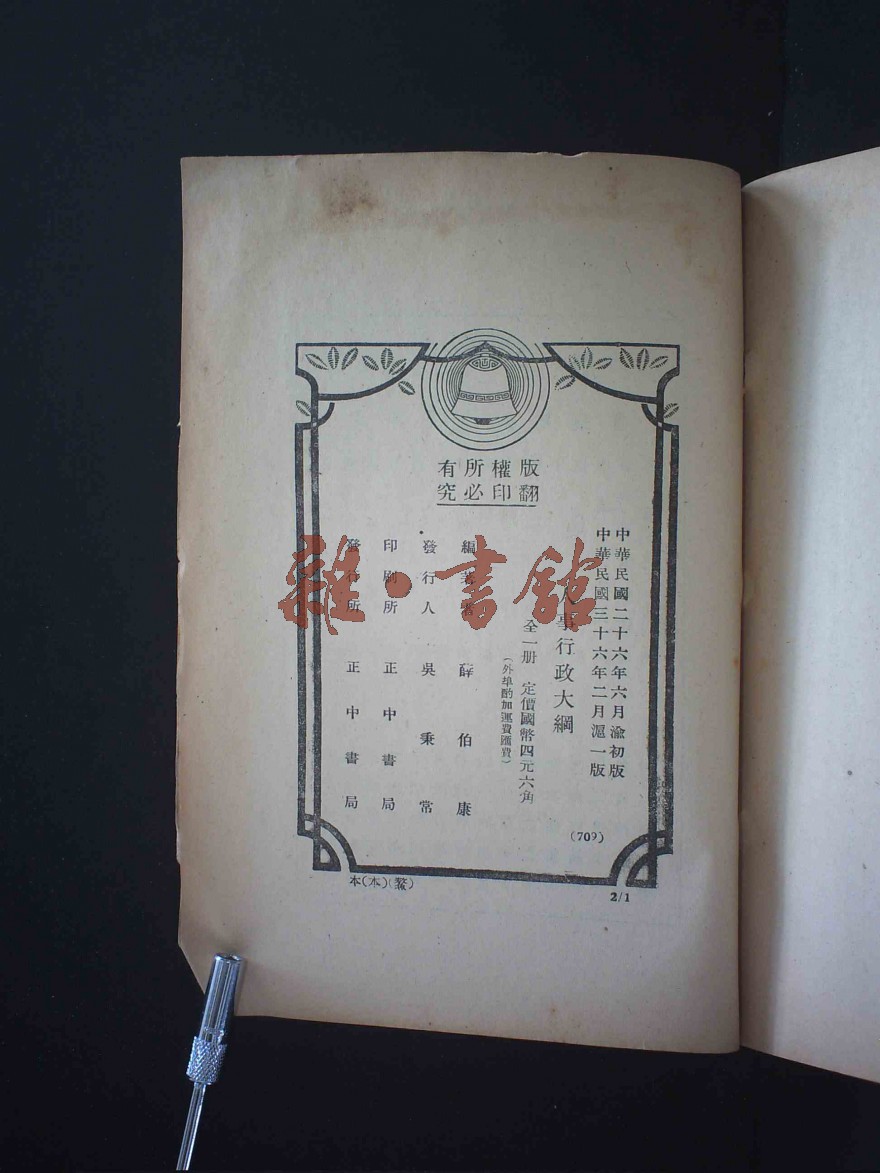 版權所有
翻印必究
中華民國二十六年六月渝初版
中華民國三十六年二月滬一版
人事行政大綱
全一册 定價國幣四元六角
(外埠酌加運費匯費)
編著者 薛伯康
發行人 吳秉常
印刷所 正中書局
發行所 正中書局
(709)
本(本)(鰲)
2/1
雜·書館